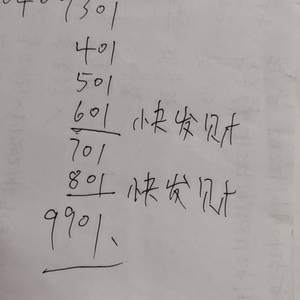 301
401
501
601 快发财
701
801 快发财
9901、